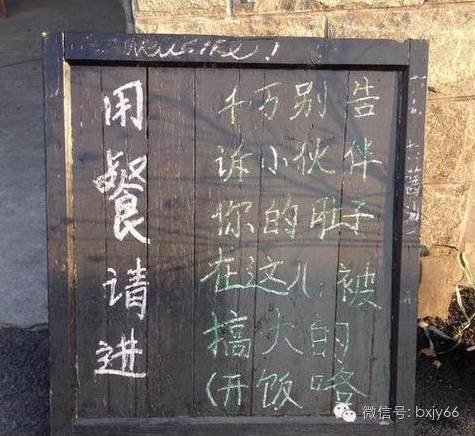 Welcome!
用餐请进
千万别告
诉小伙伴
你的肚子
在这儿被
搞大的
(开饭咯
微信号: bxjy66